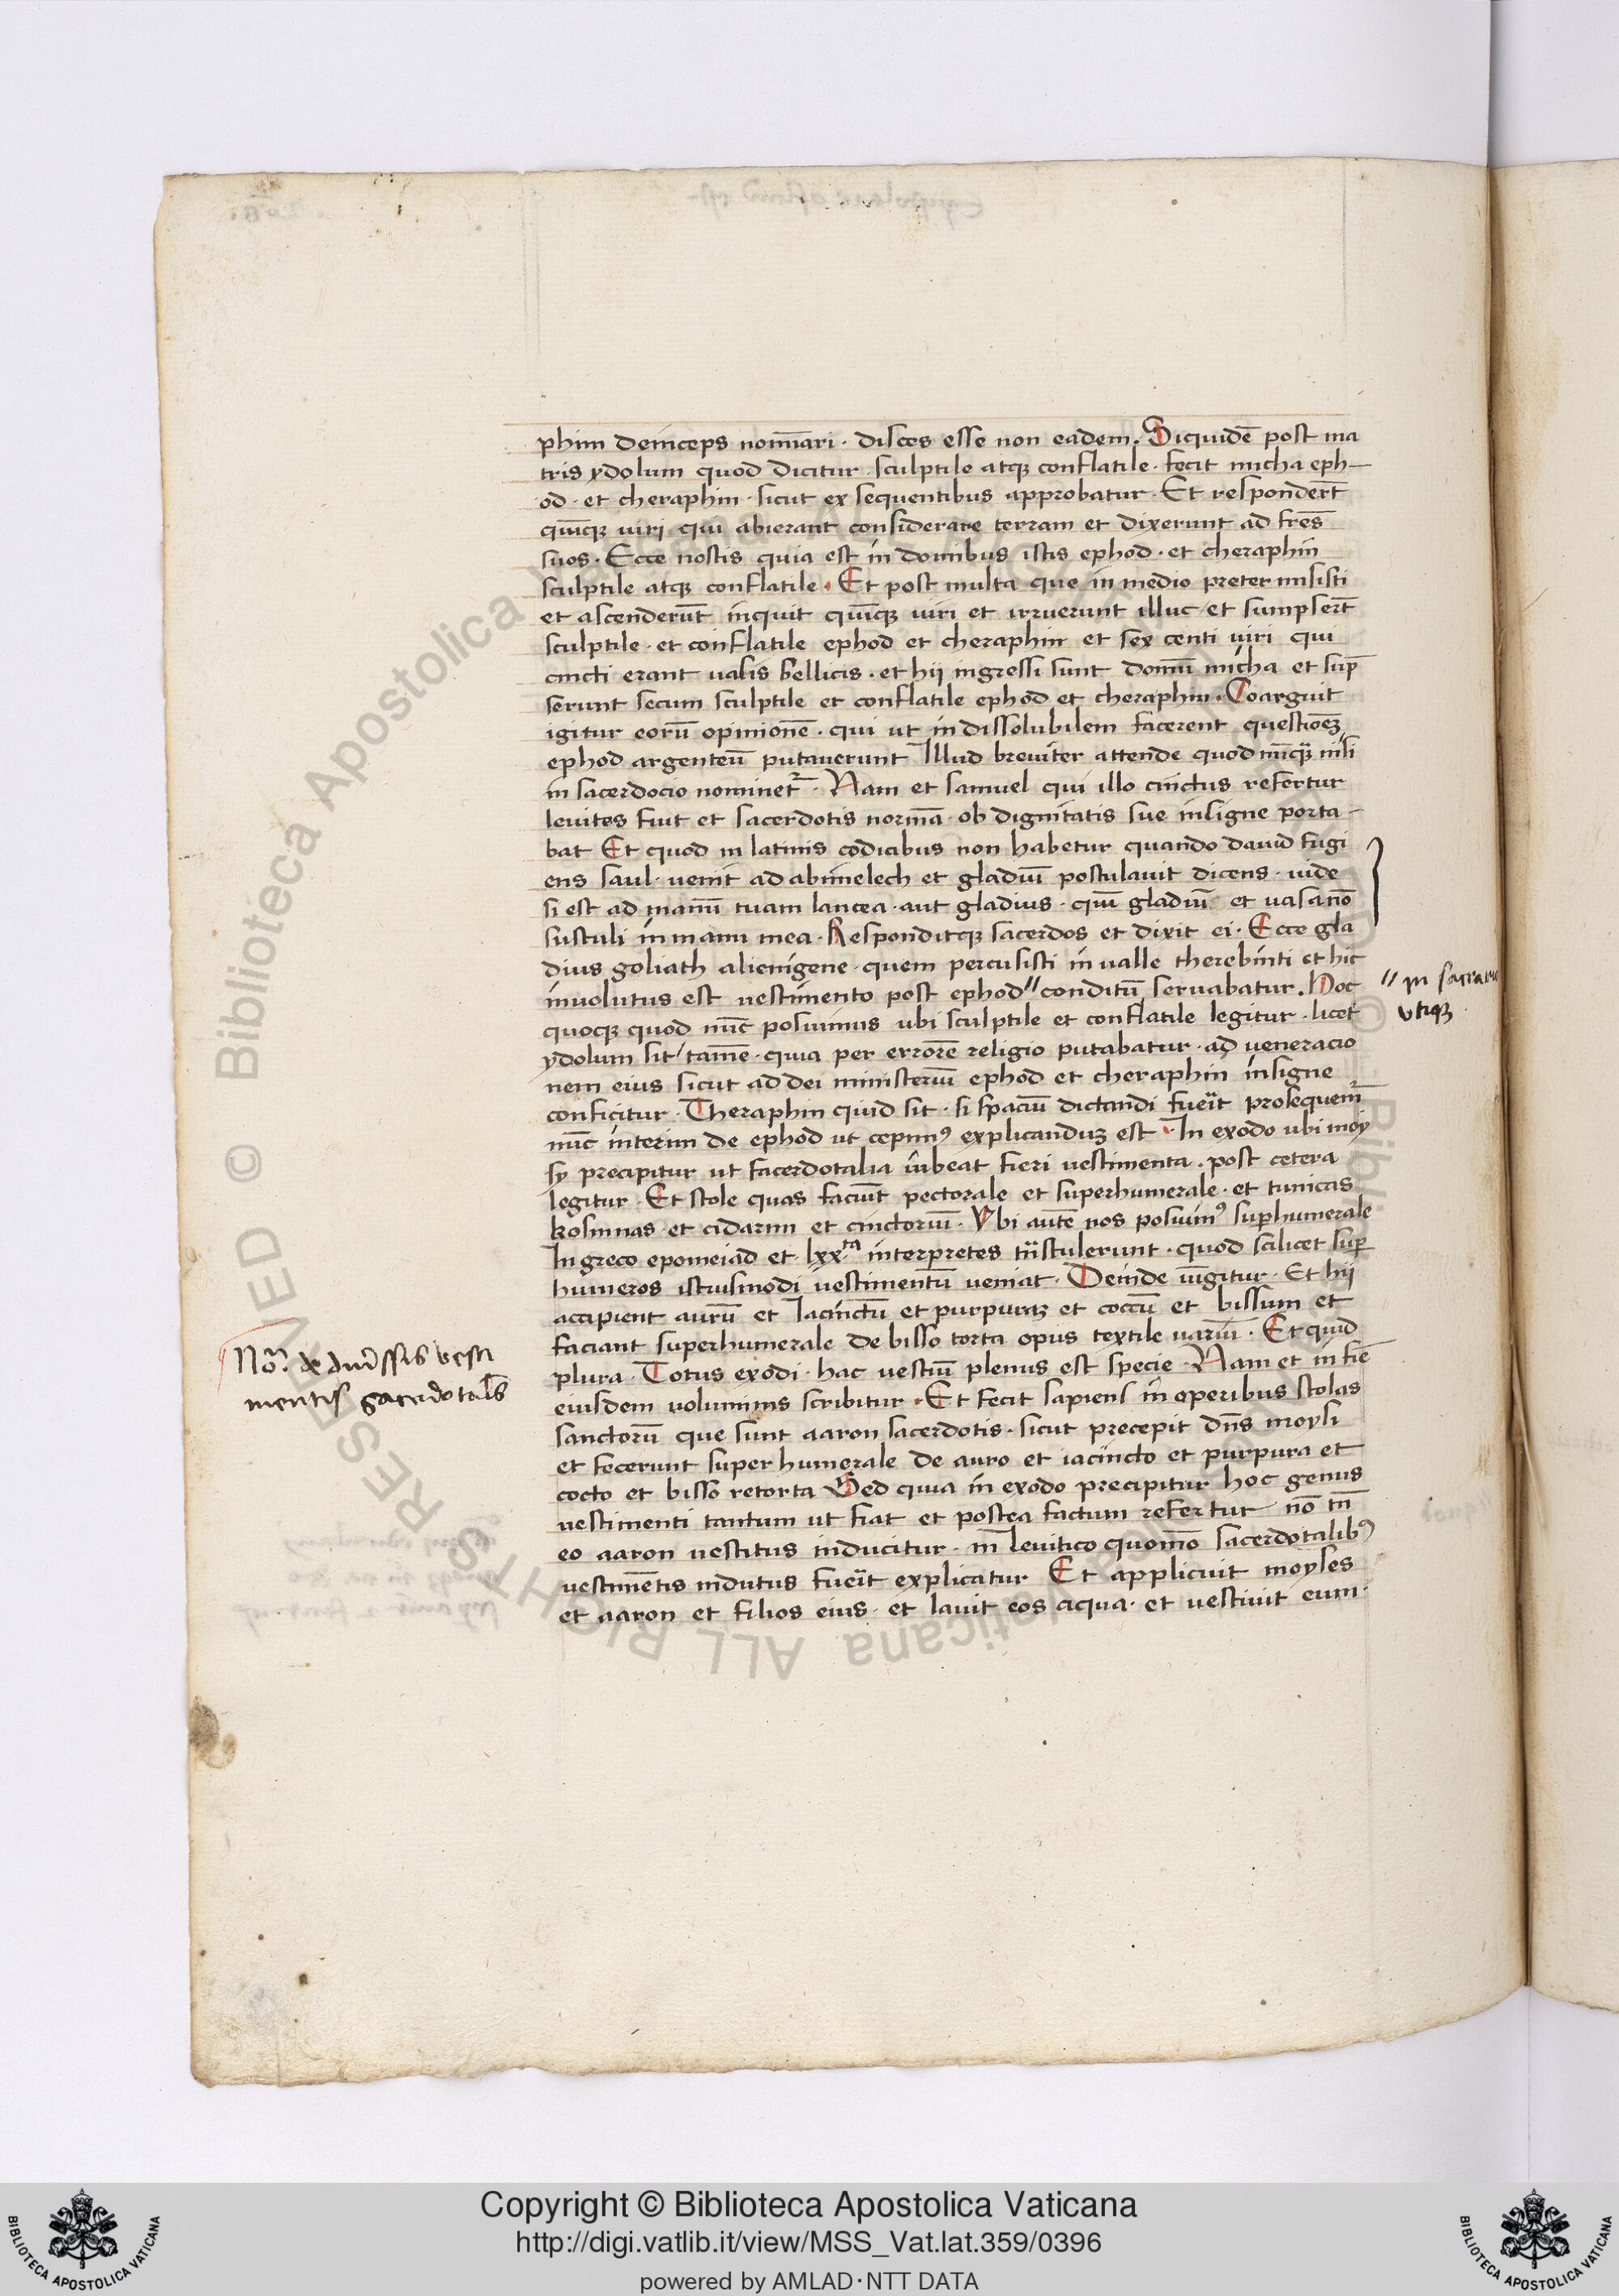 phim deinceps nom̄inari · disces esse non eadem. Siquidē post ma
tris ydolum quod dicitur · sculptile atqꝫ conflatile · fecit micha eph-
od · et theraphin · sicut ex sequentibus approbatur · Et respondert̄
quīqꝫ uiri qui abierant considerare terram et dixerunt ad fres̄
suos · Ecce nostis quia est in domibus istis ephod · et theraphin
sculptile atqꝫ conflatile · Et post multa que in medio preter misisti
et ascenderūt inquit quīqꝫ uiri et irruerunt illuc et sumpsert̄
sculptile · et conflatile ephod et theraphin et sex centi uiri qui
cincti erant uasis bellicis · et hij ingressi sunt domū micha et sūp
serunt secum sculptile et conflatile ephod et theraphin · Coarguit
igitur eorū opinionē · qui ut indissolubilem facerent questioēꝫ
ephod argenteū putauerunt Illud breuiter attende quod nūqꝫ nisi
in sacerdocio nominet᷑ · Nam et samuel qui illo cinctus refertur
leuites fuit et sacerdotis normā · ob dignitatis sue insigne porta-
bat Et quod in latinis codicibus non habetur quando dauid fugi
ens saul · uenit ad abimelech et gladiū postulauit dicens · uide
si est ad manū tuam lancea · aut gladius · qm̄ gladiū et uasa nō
sustuli in manu mea · Responditqꝫ sacerdos et dixit ei · Ecce gla
dius goliath alienigene · quem percusisti in ualle therebinti et hic
inuolutus est uestimento post ephod // conditū seruabatur. Hoc
// in sacrario
utiqꝫ
quoqꝫ quod nūc posuimus ubi sculptile et conflatile legitur · licet
ydolum sit / tamē · quia per errorē religio putabatur · ad ueneracio
nem eius sicut ad dei ministeriū ephod et theraphin insigne
conficitur · Theraphin quid sit · si spaciū dictandi fueīt prosequem᷑
nūc interim de ephod ut cepimꝰ explicanduꝫ est · In exodo ubi moy
sy precipitur ut sacerdotalia iubeat fieri uestimenta. post cetera
legitur · Et stole quas faciūt pectorale et superhumerale · et tunicas
kosmnas · et cidarim et cinctoriū · Vbi autē nos posuimꝰ suꝑhumerale
In greco epomeiad et · lxx.ta interpretes tn̄stulerunt · quod scilicet suꝑ
humeros istiusmodi uestimentum ueniat · Deinde iūgitur · Et hij
accipient aurū et Iacinctū et purpuraꝫ et coccū et bissum et
faciant superhumerale de bisso torta opus textile uariū · Et quid
plura · Totus exodi · hac uestiū plenus est specie · Nam et in fiē
Nō. de diu̾ssis vesti
mentis sacerdotalib̄
eiusdem uoluminis scribitur · Et fecit sapiens in operibus stolas
sanctorū que sunt aaron sacerdotis · sicut precepit dn̄s moysi
et fecerunt superhumerale de auro et iacincto et purpura et
cocto et bisso retorta Sed quia in exodo precipitur hoc genus
uestimenti tantum ut fiat et postea factum refertur nō tn̄
eo aaron uestitus inducitur · in leuitico quom̄o sacerdotalibꝰ
uestimētis indutus fueīt explicatur Et applicuit moyses
et aaron et filios eius · et lauit eos aqua · et uestiuit eum ·
Copyright © Biblioteca Apostolica Vaticana
http://digi.vatlib.it/view/MSS_Vat.lat.359/0396
powered by AMLAD·NTT DATA